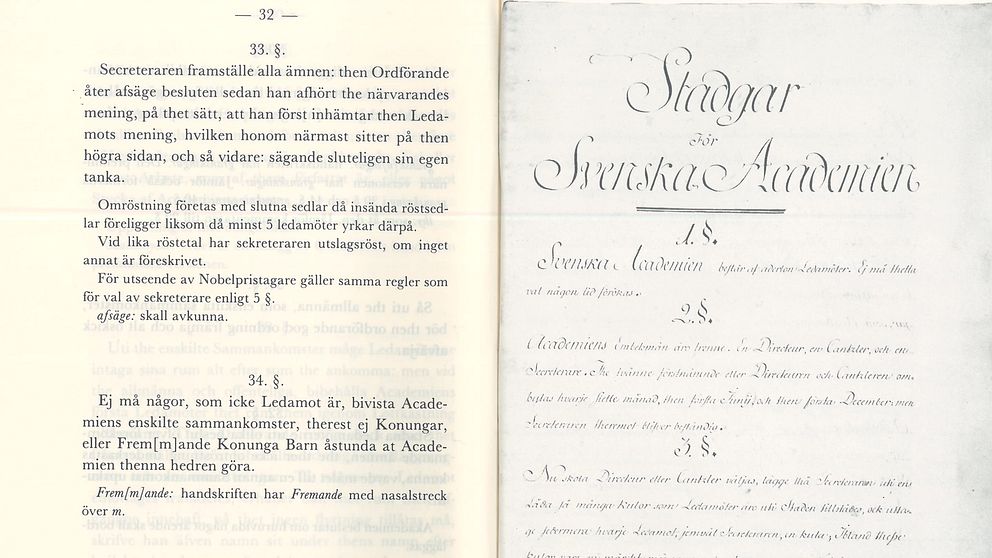 — 32 —
33. §.
Secreteraren framställe alla ämnen: then Ordförande
åter afsäge besluten sedan han afhört the närvarandes
mening, på thet sätt, att han först inhämtar then Leda-
mots mening, hvilken honom närmast sitter på then
högra sidan, och så vidare: sägande sluteligen sin egen
tanka.
Omröstning företas med slutna sedlar då insända röstsed-
lar föreligger liksom då minst 5 ledamöter yrkar därpå.
Vid lika röstetal har sekreteraren utslagsröst, om inget
annat är föreskrivet.
För utseende av Nobelpristagare gäller samma regler som
för val av sekreterare enligt 5 §.
afsäge: skall avkunna.
34. §.
Ej må någor, som icke Ledamot är, bivista Acade-
miens enskilte sammankomster, therest ej Konungar,
eller Frem[m]ande Konunga Barn åstunda at Acade-
mien thenna hedren göra.
Frem[m]ande: handskriften har Fremande med nasalstreck
över m.
Stadgar
för
Svenska Academien
1. §.
Svenska Academien består af aderton Ledamöter. Ej må thetta
tal någon tid förökas.
2. §.
Academiens Embetsmän äro trenne. En Directeur, en Cantzler, och en
Secreterare. The tvänne förstnämnde eller Directeuren och Cantzleren om-
bytas hvarje siette månad, then första Junij, och then första December: men
Secreteraren theremot blifver beständig.
3. §.
Nu skola Directeur eller Cantzler väljas, lägge thå Secreteraren uti en
Låda så många kulor som Ledamöter äro uti Staden tillstädes, och utta-
ge sedermera hvarje Ledamot, jemväl Secreteraren, en kula; Ibland thesse